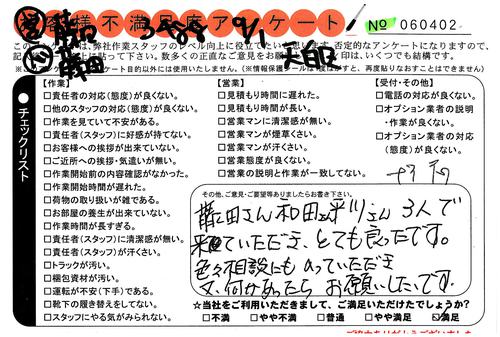 お客様不満足度アンケート
No 060402
9/1
このアンケートは、弊社作業スタッフのレベル向上に役立てたいと思います。否定的なアンケートになりますので、
数多くの正直なご意見をお願い
印は、いくつでも結構です。
アンケート目的以外には使用いたしません。(※情報保護シールは
再度貼りなおすことはできません)
チェックリスト
【作業】
□責任者の対応(態度)が良くない。
□他のスタッフの対応(態度)が良くない。
□作業を見ていて不安がある。
□責任者(スタッフ)に好感が持てない。
□お客様への挨拶が出来ていない。
□ご近所への挨拶・気遣いが無い。
□作業開始前の内容確認がなかった。
□作業開始時間が遅れた。
□荷物の取り扱いが雑である。
□お部屋の養生が出来ていない。
□作業時間が長すぎる。
□責任者(スタッフ)に清潔感が無い。
□責任者(スタッフ)が汗くさい。
□トラックが汚い。
□梱包資材が汚い。
□運転が不安(下手)である。
□靴下の履き替えをしてない。
□スタッフにやる気がみられない。
【営業】
□見積もり時間に遅れた。
□見積もり時間が長い。
□営業マンに清潔感が無い。
□営業マンが煙草くさい。
□営業マンが汗くさい。
□営業態度が良くない。
□営業の説明と作業が一致してない。
【受付・その他】
□電話の対応が良くない。
□オプション業者の説明
・作業が良くない。
□オプション業者の対応
(態度)が良くない。
その他、ご意見・ご要望等ありましたらお書き下さい。
さん和田さん平川さん3人で
来ていただき、とても良ったです。
色々相談にものっていただき
又、何かあったらお願いしたいです。
☆当社をご利用いただきまして、ご満足いただけたでしょうか?
□不満 □やや不満 □普通 □やや満足 ☑満足
ご協力ありがとうございました